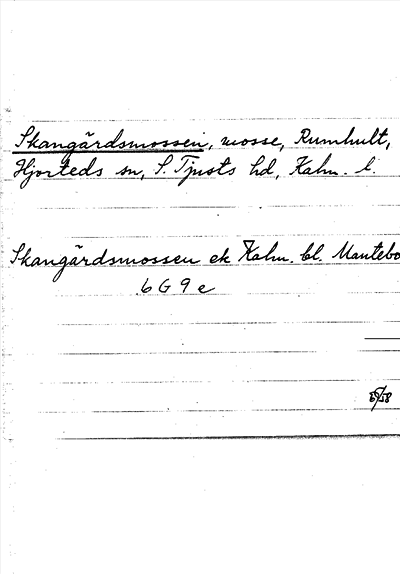 Skangårdsmossen, mosse, Rumhult,
Hjorteds sn, S. Tjusts hd, Kalm. l.
Skangårdsmossen ek Kalm. bl. Mantebo
6 G 9 e